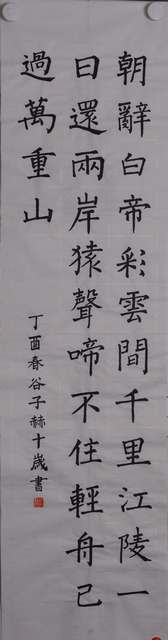 朝辭白帝彩雲間千里江陵一
日還兩岸猿聲啼不住輕舟已
過萬重山
丁酉春谷子赫十歲書